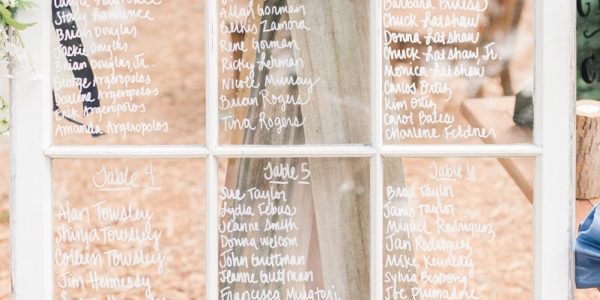 Stacy Lawrence
Brian Douglas
Jackie Douglas
Brian Douglas Jr.
George Argeropolos
Darlene Argeropolos
Erik Argeropolos
Amanda Argeropolos
Allan Gorman
Belkis Zamora
Rene Gorman
Ricky Lehman
Nicole Murray
Brian Rogers
Tina Rogers
Barbara Pruess
Chuck Hatshaw
Donna Hatshaw
Chuck Hatshaw Jr.
Monica Hatshaw
Carlos Ortiz
Kim Ortiz
Carol Bales
Charlene Feldner
Table 4
Alan Towsley
Shinja Towsley
Colleen Towsley
Jim Hennessy
Table 5
Sue Taylor
Lydia Febus
Jeanne Smith
Donna Welcom
John Guttman
Jeanne Guttman
Francesca Muratori
Table 6
Brad Taylor
Taylor
Miguel Rodriguez
Jan Rodriguez
Mike Kennedy
Sylvia Bistrong
Joe Plumadore